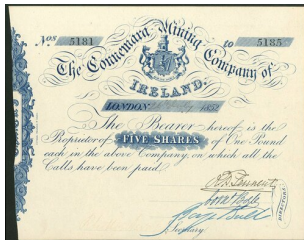 Nos 5181 to 5185
The Connemara Mining Company of
IRELAND.
LONDON 1852
The Bearer hereof is the
Proprietor of FIVE SHARES of One Pound
each in the above Company, on which all the
Calls have been paid.
DIRECTORS
Secretary